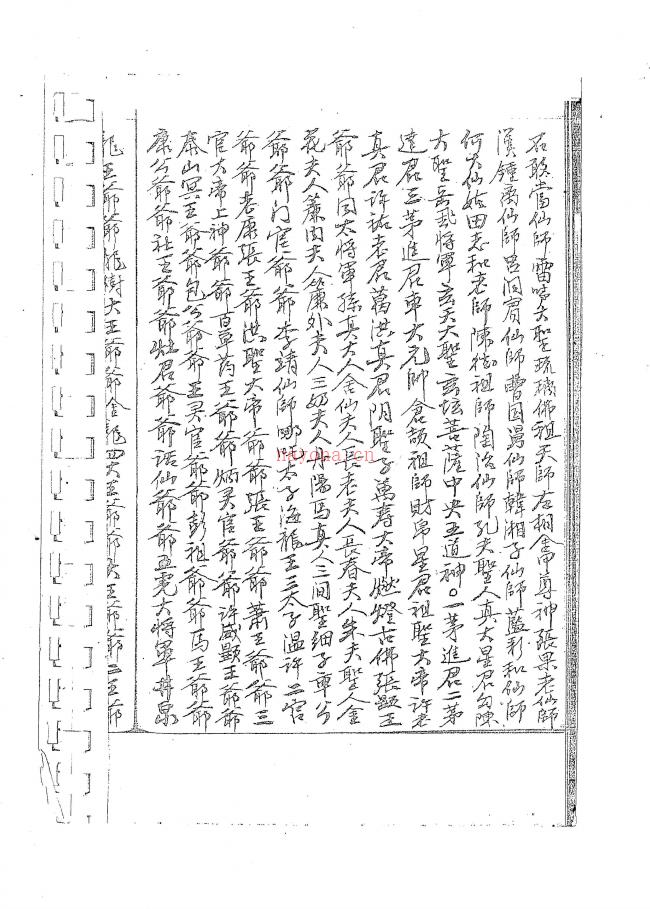 石敢當仙師雷
大聖琉璃佛祖天師左相
尊神張果老仙師
漢鍾离仙師呂洞賓仙師曹国舅仙師韓湘子仙師藍彩和仙師
何大仙姑田志和老師陳
祖師陶冶仙師孔夫聖人真大星君勾陳
大聖岳武將軍玄天大聖玄坛菩薩中央五道神。一茅進君二茅
進君三茅進君車大元帥倉颉祖師財帛星君祖聖大帝許
真君許祐老君葛洪真君阴聖子萬寿大帝燃燈古佛張顕王
爺爺周太將軍孫真人金仙夫人長老夫人長春夫人朱夫聖人金
花夫人簾内夫人簾外夫人三奶夫人丹陽馬真人三间聖细子車公
爺爺门官爺爺李靖仙師哪吒太子海龍王三太子温許二官
爺爺老康張王爺洪聖大帝爺爺張王爺爺蕭王爺爺三
官大帝上神爺爺百草药王爺爺炳灵官爺爺許威顕王爺爺
泰山冥王爺爺包公爺爺王灵官爺爺彭祖爺爺馬王爺爺
康公爺爺社王爺爺灶君爺爺诸仙爺爺五虎大將軍井泉
龍王爺爺龍樹大王爺爺金龍四大王爺爺
王爺爺二王爺
nayona.cn